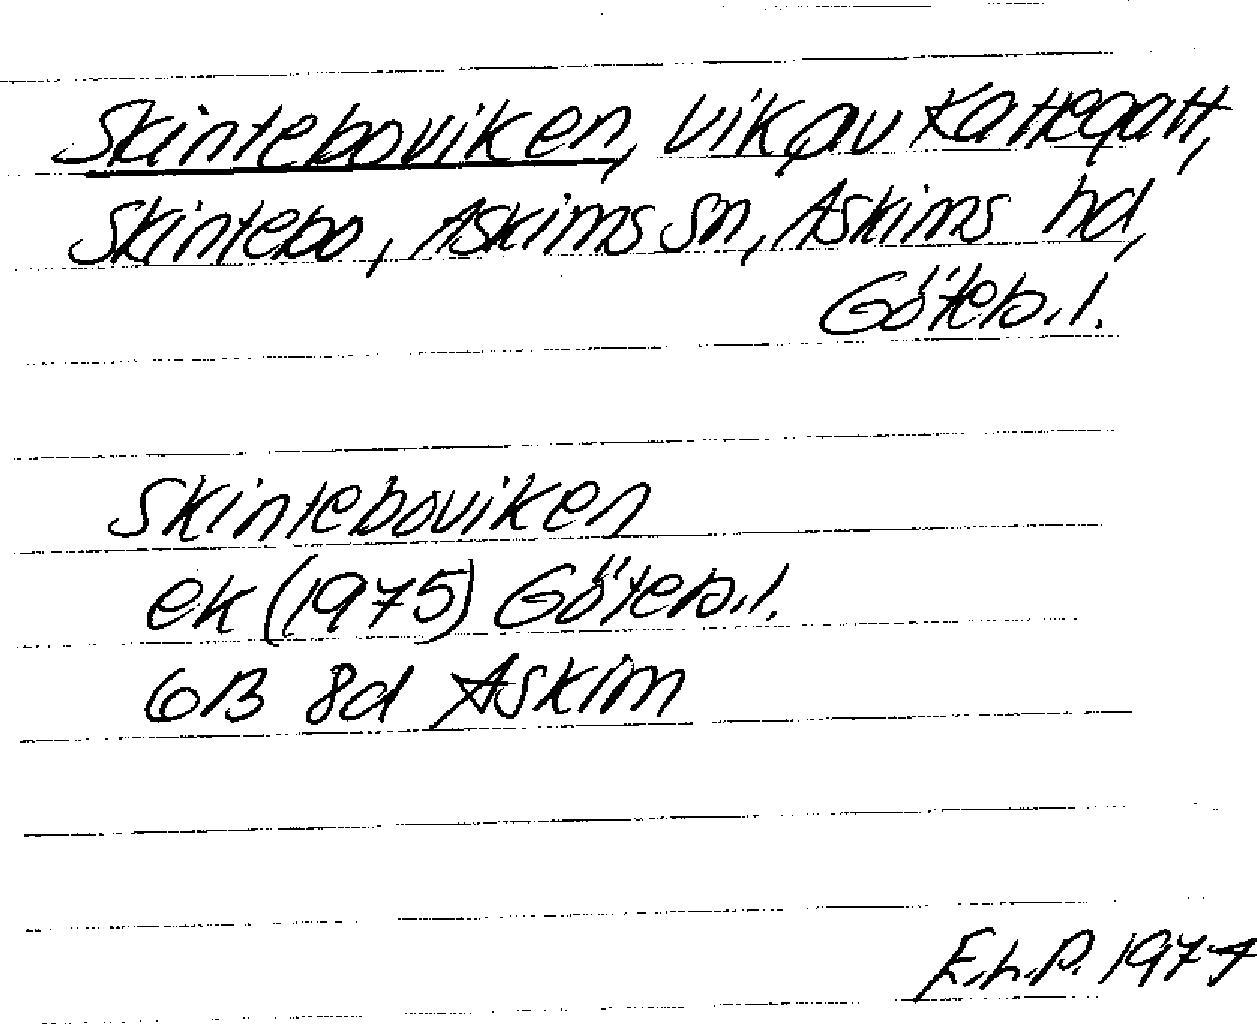 Skinteboviken, vik av Kattegatt,
Skintebo, Askims sn, Askims hd,
Göteb. l.
Skinteboviken
ek (1975) Göteb. l.
6B 8d Askim
E.L.P. 1977